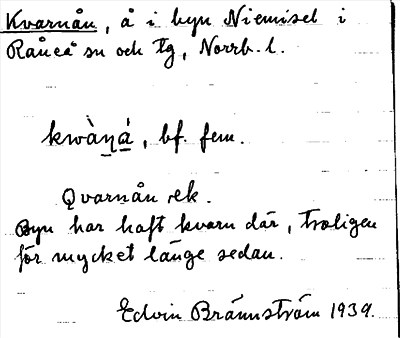 Kvarnån, å i byn Niemisel i
Råneå sn och tg, Norrb. l.
kwàṉá̱, bf. fem.
Qvarnån ek.
Byn har haft kvarn där, troligen
för mycket länge sedan.
Edvin Brännström 1939.